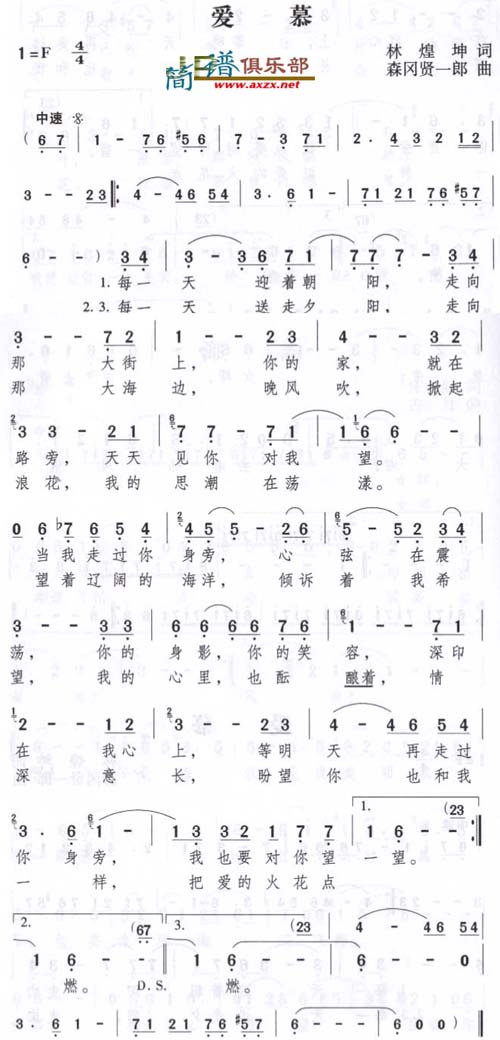 爱 慕
1=F 4/4
林 煌 坤 词
森冈贤一郎 曲
简谱俱乐部
www.axzx.net
中速
( 6 7 | 1 - 7 6 #5 6 | 7 - 3 7 1 | 2 . 4 3 2 1 2 |
3 - - 2 3 ‖: 4 - 4 6 5 4 | 3 . 6 1 - | 7 1 2 1 7 6 #5 7 |
6 - - 3 4 | 3 - 3 6 7 1 | 7 7 7 - 3 4 |
1. 每 一 天 迎 着 朝 阳， 走 向
2. 3. 每 一 天 送 走 夕 阳， 走 向
3 - - 7 2 | 1 - - 2 3 | 4 - - 3 2 |
那 大 街 上， 你 的 家， 就 在
那 大 海 边， 晚 风 吹， 掀 起
3 3 - 2 1 | 7 7 - 7 1 | 1 6 6 - - |
路 旁， 天 天 见 你 对 我 望。
浪 花， 我 的 思 潮 在 荡 漾。
0 6 ♭7 6 5 4 | 4 5 5 - 2 6 | 5 - 5 2 3 4 |
当 我 走 过 你 身 旁， 心 弦 在 震
望 着 辽 阔 的 海 洋， 倾 诉 着 我 希
3 - - 3 3 | 6 6 6 6 6 6 | 1 - - 7 1 |
荡， 你 的 身 影， 你 的 笑 容， 深 印
望， 我 的 心 里， 也 酝 酿 着， 情
2 - - 1 2 | 3 - - 2 3 | 4 - 4 6 5 4 |
在 我 心 上， 等 明 天 再 走 过
深 意 长， 盼 望 你 也 和 我
3 . 6 1 - | 1 3 3 2 1 7 7 | 1 6 - - :‖
1.
(2 3
你 身 旁， 我 也 要 对 你 望 一 望。
一 样， 把 爱 的 火 花 点
2. (67 3. (23 4 - 4 6 5 4
1 6 - - | 1 6 - - | 6 - - 0 |
燃。 D.S. 燃。
3 . 6 1 - | 7 1 2 1 7 6 #5 7 | 6 - - - | 6 0 0 0 ) ‖